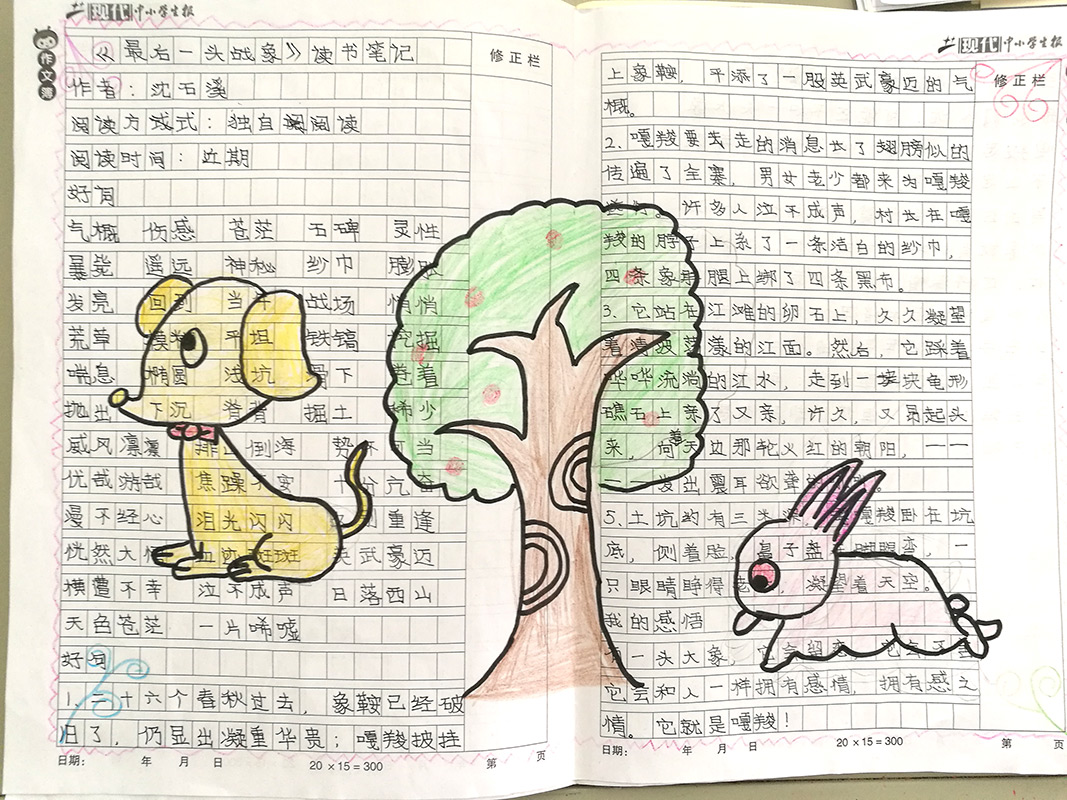 现代中小学生报
作文簿
《最后一头战象》读书笔记
修正栏
作者：沈石溪
阅读方式：独自阅读
阅读时间：近期
好词
气概 伤感 苍茫 石碑 灵性
暴毙 遥远 神秘 纱巾 膨胀
发亮 回到 当年 战场 悄悄
荒草 平坦 铁镐 挖掘
喘息 椭圆 浅坑 滑下 卷着
抛出 下沉 脊背 掘土 稀少
威风凛凛 排山倒海 势不可当
优哉游哉 焦躁不安 十分亢奋
漫不经心 泪光闪闪 重逢
恍然大悟 血迹斑斑 英武豪迈
横遭不幸 泣不成声 日落西山
天色苍茫 一片唏嘘
好句
1.二十六个春秋过去，象鞍已经破
旧了，仍显出凝重华贵；嘎羧披挂
日期： 年 月 日 20×15=300 第 页
现代中小学生报
修正栏
上象鞍，平添了一股英武豪迈的气
概。
2.嘎羧要去走的消息长了翅膀似的
传遍了全寨，男女老少都来为嘎羧
送行。许多人泣不成声，村长在嘎
羧的脖子上系了一条洁白的纱巾，
四条象腿上绑了四条黑布。
3.它站在江滩的卵石上，久久凝望
着清波荡漾的江面。然后，它踩着
哗哗流淌的江水，走到一块龟形
礁石上亲了又亲，许久，又昂起头
来，向着天边那轮火红的朝阳，——
——发出震耳欲聋的
5.土坑约有三米深，嘎羧卧在坑
底，侧着脸，鼻子盘 脚踝弯，一
只眼睛睁得老 ，凝望着天空。
我的感悟
有一头大象，它会留恋，它会
它会和人一样拥有感情，拥有感之
情。它就是嘎羧！
日期： 年 月 日 20×15=300 第 页